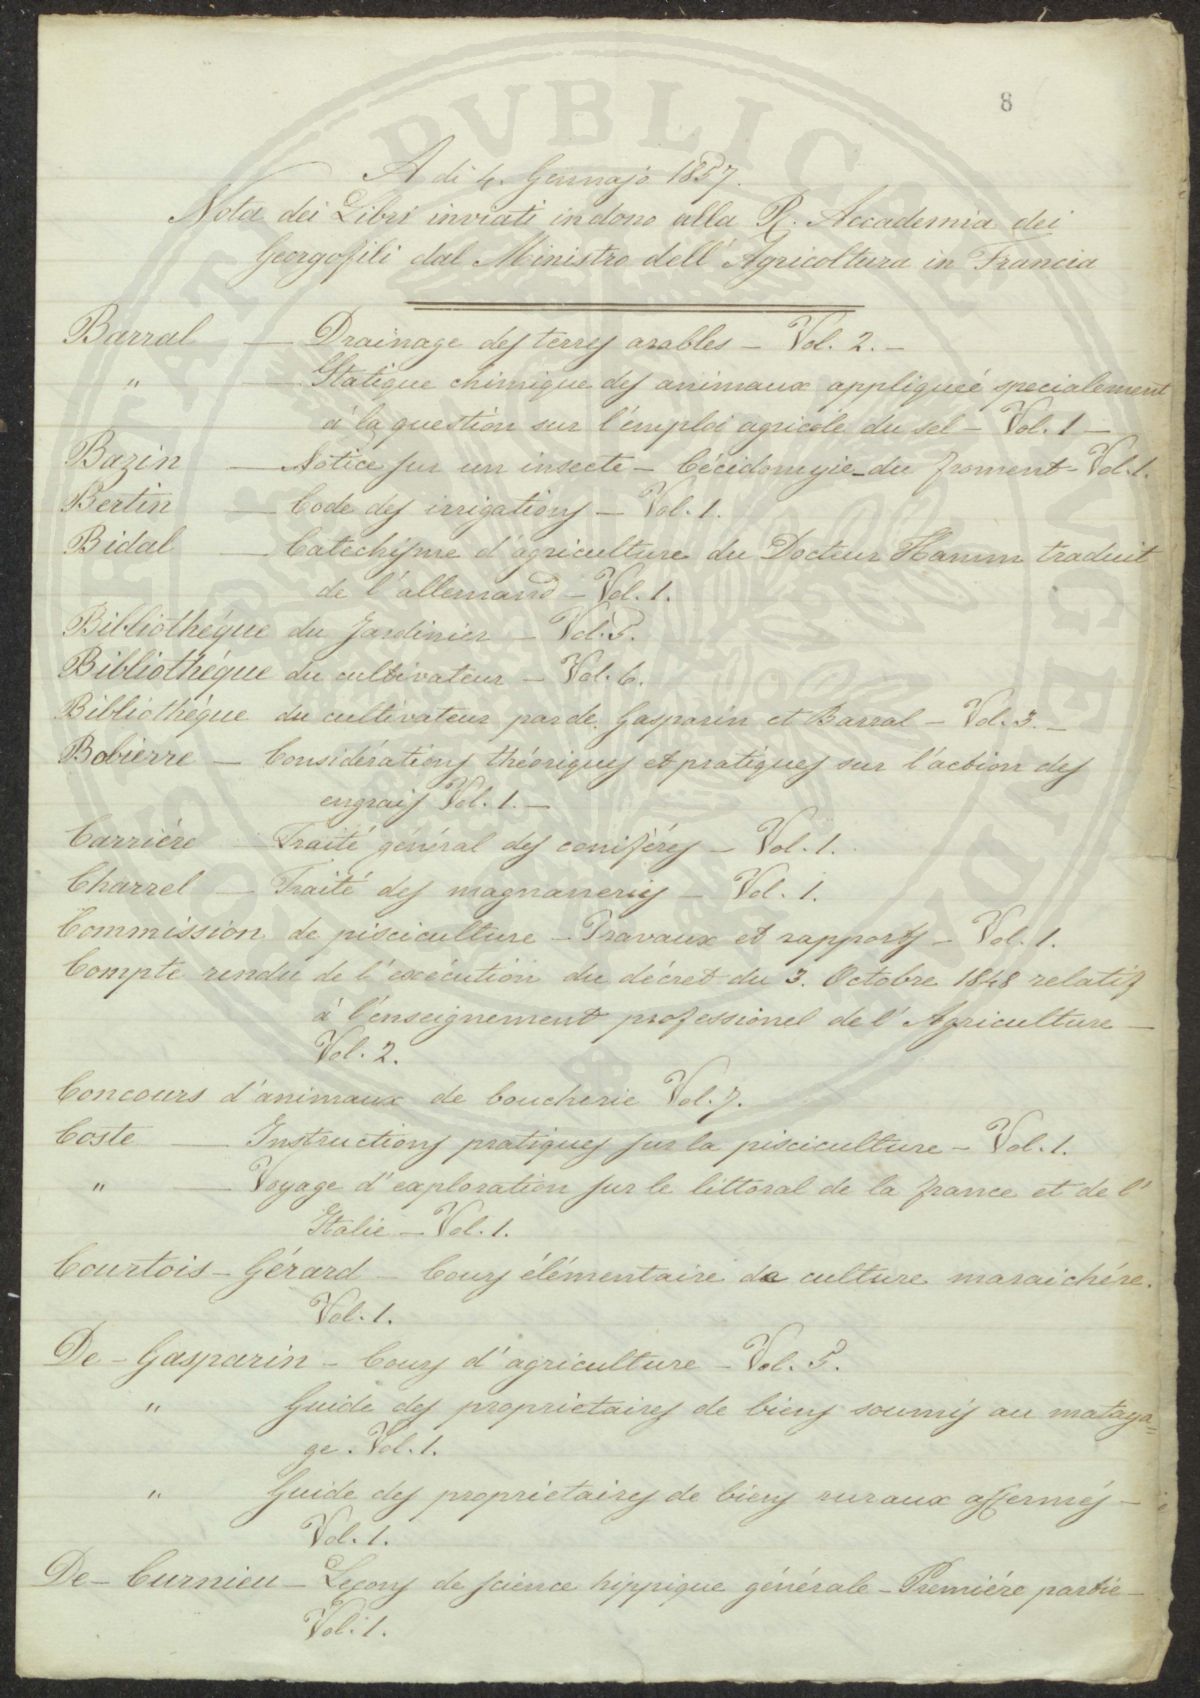 8
A di 4. Gennajo 1857.
Nota dei Libri inviati in dono alla R. Accademia dei
Georgofili dal Ministro dell'Agricoltura in Francia
Barral — Drainage des terres arables — Vol. 2. —
" — Statique chimique des animaux appliqueé specialement
à la question sur l'émploi agricole du sel — Vol. 1 —
Bazin — Notice sur un insecte — Cécidomyie du froment — Vol. 1.
Bertin — Code des irrigations — Vol. 1.
Bidal — Catechisme d'agriculture du Docteur Hamm traduit
de l'allemand — Vol. 1.
Bibliothéque du Jardinier — Vol. 5.
Bibliothéque du cultivateur — Vol. 6.
Bibliothéque du cultivateur par de Gasparin et Barral — Vol. 3. —
Bobierre — Considérations théoriques et pratiques sur l'action des
engrais Vol. 1. —
Carriére — Traité général des coniféres — Vol. 1.
Charrel — Traité des magnaneries — Vol. 1.
Commission de pisciculture — Travaux et rapports — Vol. 1.
Compte rendu de l'exécution du décret du 3. Octobre 1848 relatif
à l'énseignement professionel de l'Agriculture —
Vol. 2.
Concours d'animaux de boucherie Vol. 7.
Coste — Instructions pratiques sur la pisciculture — Vol. 1.
" — Voyage d'exploration sur le littoral de la france et de l'
Italie — Vol. 1.
Courtois — Gérard — Cours élémentaire de culture maraichére.
Vol. 1.
De — Gasparin — Cours d'agriculture — Vol. 5.
" Guide des proprietaires de biens soumis au mataya=
ge. Vol. 1.
" Guide des proprietaires de biens ruraux affermés —
Vol. 1.
De — Curnieu — Leçons de science hippique générale — Premiére partie —
Vol. 1.